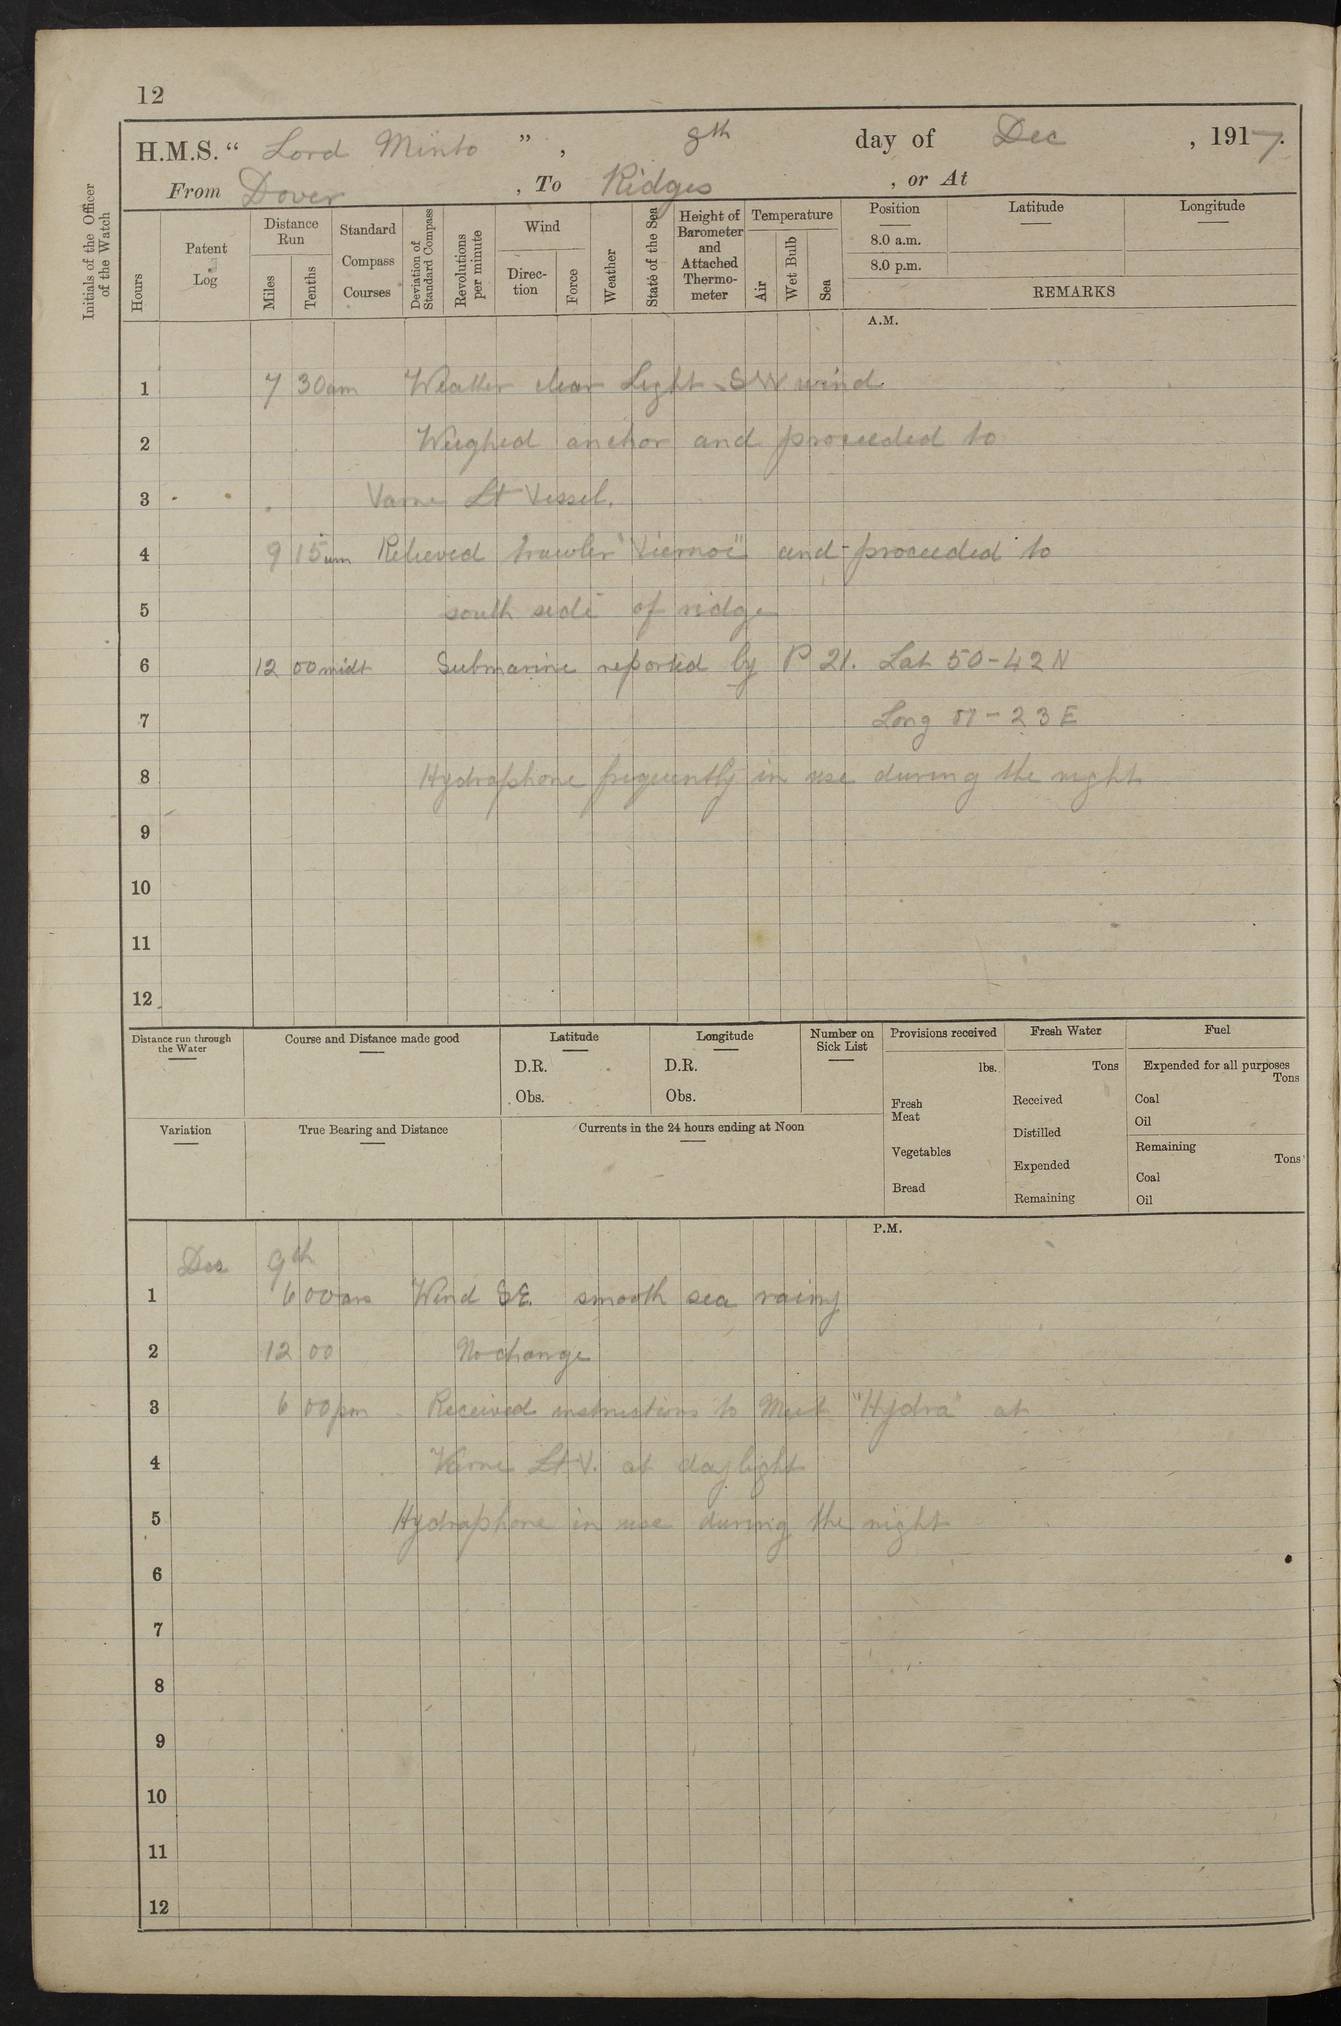 12
H.M.S. “ Lord Minto ” , 8th day of Dec , 1917.
From Dover , To Ridges , or At
Initials of the Officer of the Watch
Hours
Patent Log
Distance Run
Miles
Tenths
Standard Compass Courses
Deviation of Standard Compass
Revolutions per minute
Wind
Direc- tion
Force
Weather
State of the Sea
Height of Barometer and Attached Thermo- meter
Temperature
Air
Wet Bulb
Sea
Position
8.0 a.m.
8.0 p.m.
Latitude
Longitude
REMARKS
A.M.
1 7 30am Weather clear Light SW wind
2 Weighed anchor and proceeded to
3 Varne Lt Vessel.
4 9 15am Relieved trawler and proceeded to
5 south side of ridge
6 12 00 midt Submarine reported by P 21. Lat 50-42 N
7 Long 01-23 E
8 Hydraphone frequently in use during the night
9
10
11
12
Distance run through the Water
Course and Distance made good
Latitude
D.R.
Obs.
Longitude
D.R.
Obs.
Number on Sick List
Provisions received
lbs.
Fresh Meat
Vegetables
Bread
Fresh Water
Tons
Received
Distilled
Expended
Remaining
Fuel
Expended for all purposes
Tons
Coal
Oil
Remaining
Tons
Coal
Oil
Variation
True Bearing and Distance
Currents in the 24 hours ending at Noon
P.M.
Dec 9th
1 6 00am Wind SE. smooth sea rainy
2 12 00 No change
3 6 00pm Received instructions to Meet "Hydra" at
4 Varne Lt V. at daylight
5 Hydraphone in use during the night
6
7
8
9
10
11
12